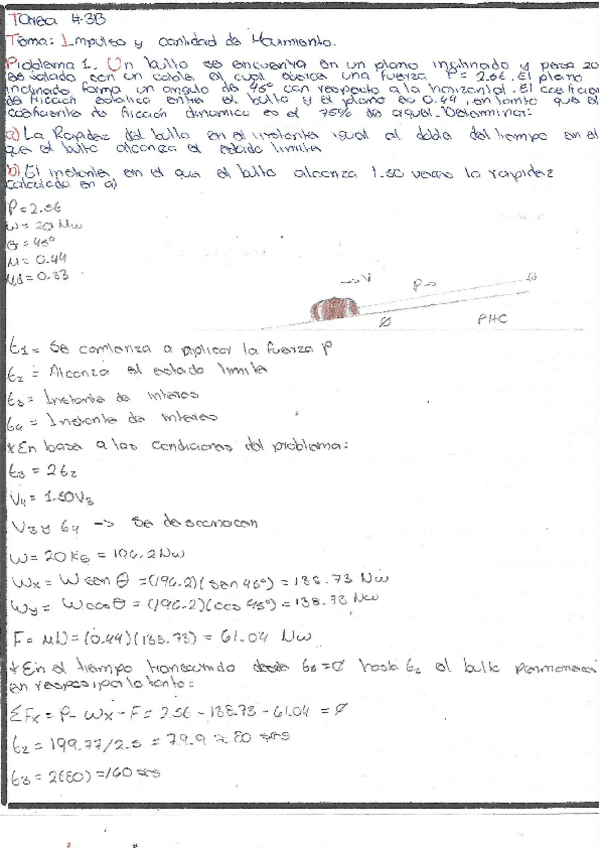 Tarea #3B
Tema: Impulso y cantidad de Movimiento.
Problema 1. Un bulto se encuentra en un plano inclinado y pesa 20
es jalado con un cable el cual ejerce una fuerza P = 2.5t. El plano
inclinado forma un angulo de 45° con respecto a la horizontal. El coeficien
de friccion estatica entre el bulto y el plano es 0.44, en tanto que el
coeficiente de friccion dinamico es el 75% de aquel. Determinar:
a) La Rapidez del bulto en el instante igual al doble del tiempo en el
que el bulto alcanza el estado limite
b) El instante en el que el bulto alcanza 1.50 veces la rapidez
calculada en a)
P = 2.5t
W = 20 Nw
θ = 45°
μ = 0.44
μd = 0.33
→ V P→
Ø PHC
t1 = Se comienza a aplicar la fuerza P
t2 = Alcanza el estado limite
t3 = Instante de interes
t4 = Instante de interes
*En base a las condiciones del problema:
t3 = 2t2
V4 = 1.50V3
V3 y t4 -> Se desconocen
W = 20 Kg = 196.2 Nw
Wx = W sen θ = (196.2)(sen 45°) = 138.73 Nw
Wy = W cos θ = (196.2)(cos 45°) = 138.73 Nw
F = μN = (0.44)(138.73) = 61.04 Nw
*En el tiempo transcurrido desde = Ø hasta t2 el bulto permanece
en reposo por lo tanto:
ΣFx = P - Wx - F = 2.5t - 138.73 - 61.04 = Ø
t2 = 199.77/2.5 = 79.9 ≈ 80 seg
t3 = 2(80) = 160 seg